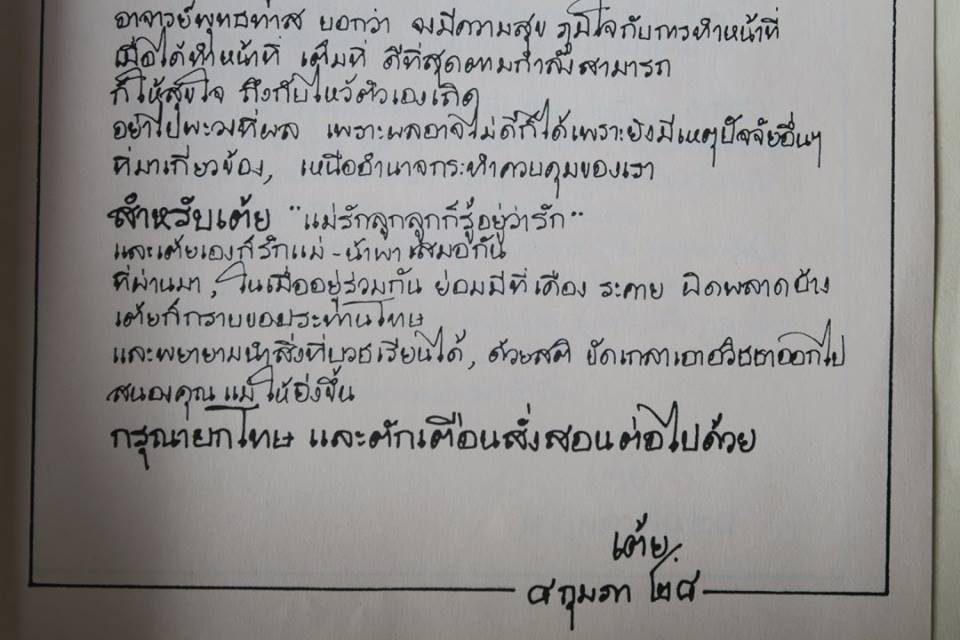 อาจารย์พุทธทาส บอกว่า จงมีความสุข ภูมิใจกับการทำหน้าที่
เมื่อได้ทำหน้าที่ เต็มที่ ดีที่สุดตามกำลังสามารถ
ก็ให้สุขใจ ถึงกับไหว้ตัวเองเถิด
อย่าไปพะวงที่ผล เพราะผลอาจไม่ดีก็ได้เพราะยังมีเหตุปัจจัยอื่นๆ
ที่มาเกี่ยวข้อง, เหนืออำนาจกระทำควบคุมของเรา
สำหรับเต้ย "แม่รักลูกลูกก็รู้อยู่ว่ารัก"
และเต้ยเองก็รักแม่ - น้าพา เสมอกัน
ที่ผ่านมา, ในเมื่ออยู่ร่วมกัน ย่อมมีที่เคือง ระคาย ผิดพลาดบ้าง
เต้ยก็กราบขอประทานโทษ
และพยายามนำสิ่งที่บวชเรียนได้, ด้วยสติ ขัดเกลาเอาอวิชชาออกไป
สนองคุณ แม่ ให้ยิ่งขึ้น
กรุณายกโทษ และตักเตือนสั่งสอนต่อไปด้วย
เต้ย.
๔ กุมภา ๒๔